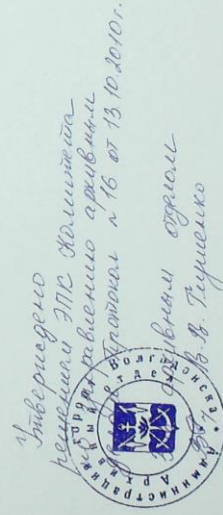 Утверждено
решением ЭПК Комитета
по управлению архивным
делом протокол № 16 от 13.10.2010г.
Зав. архивным отделом
В.В. Глущенко
Администрация города Волгодонска
Архивный отдел